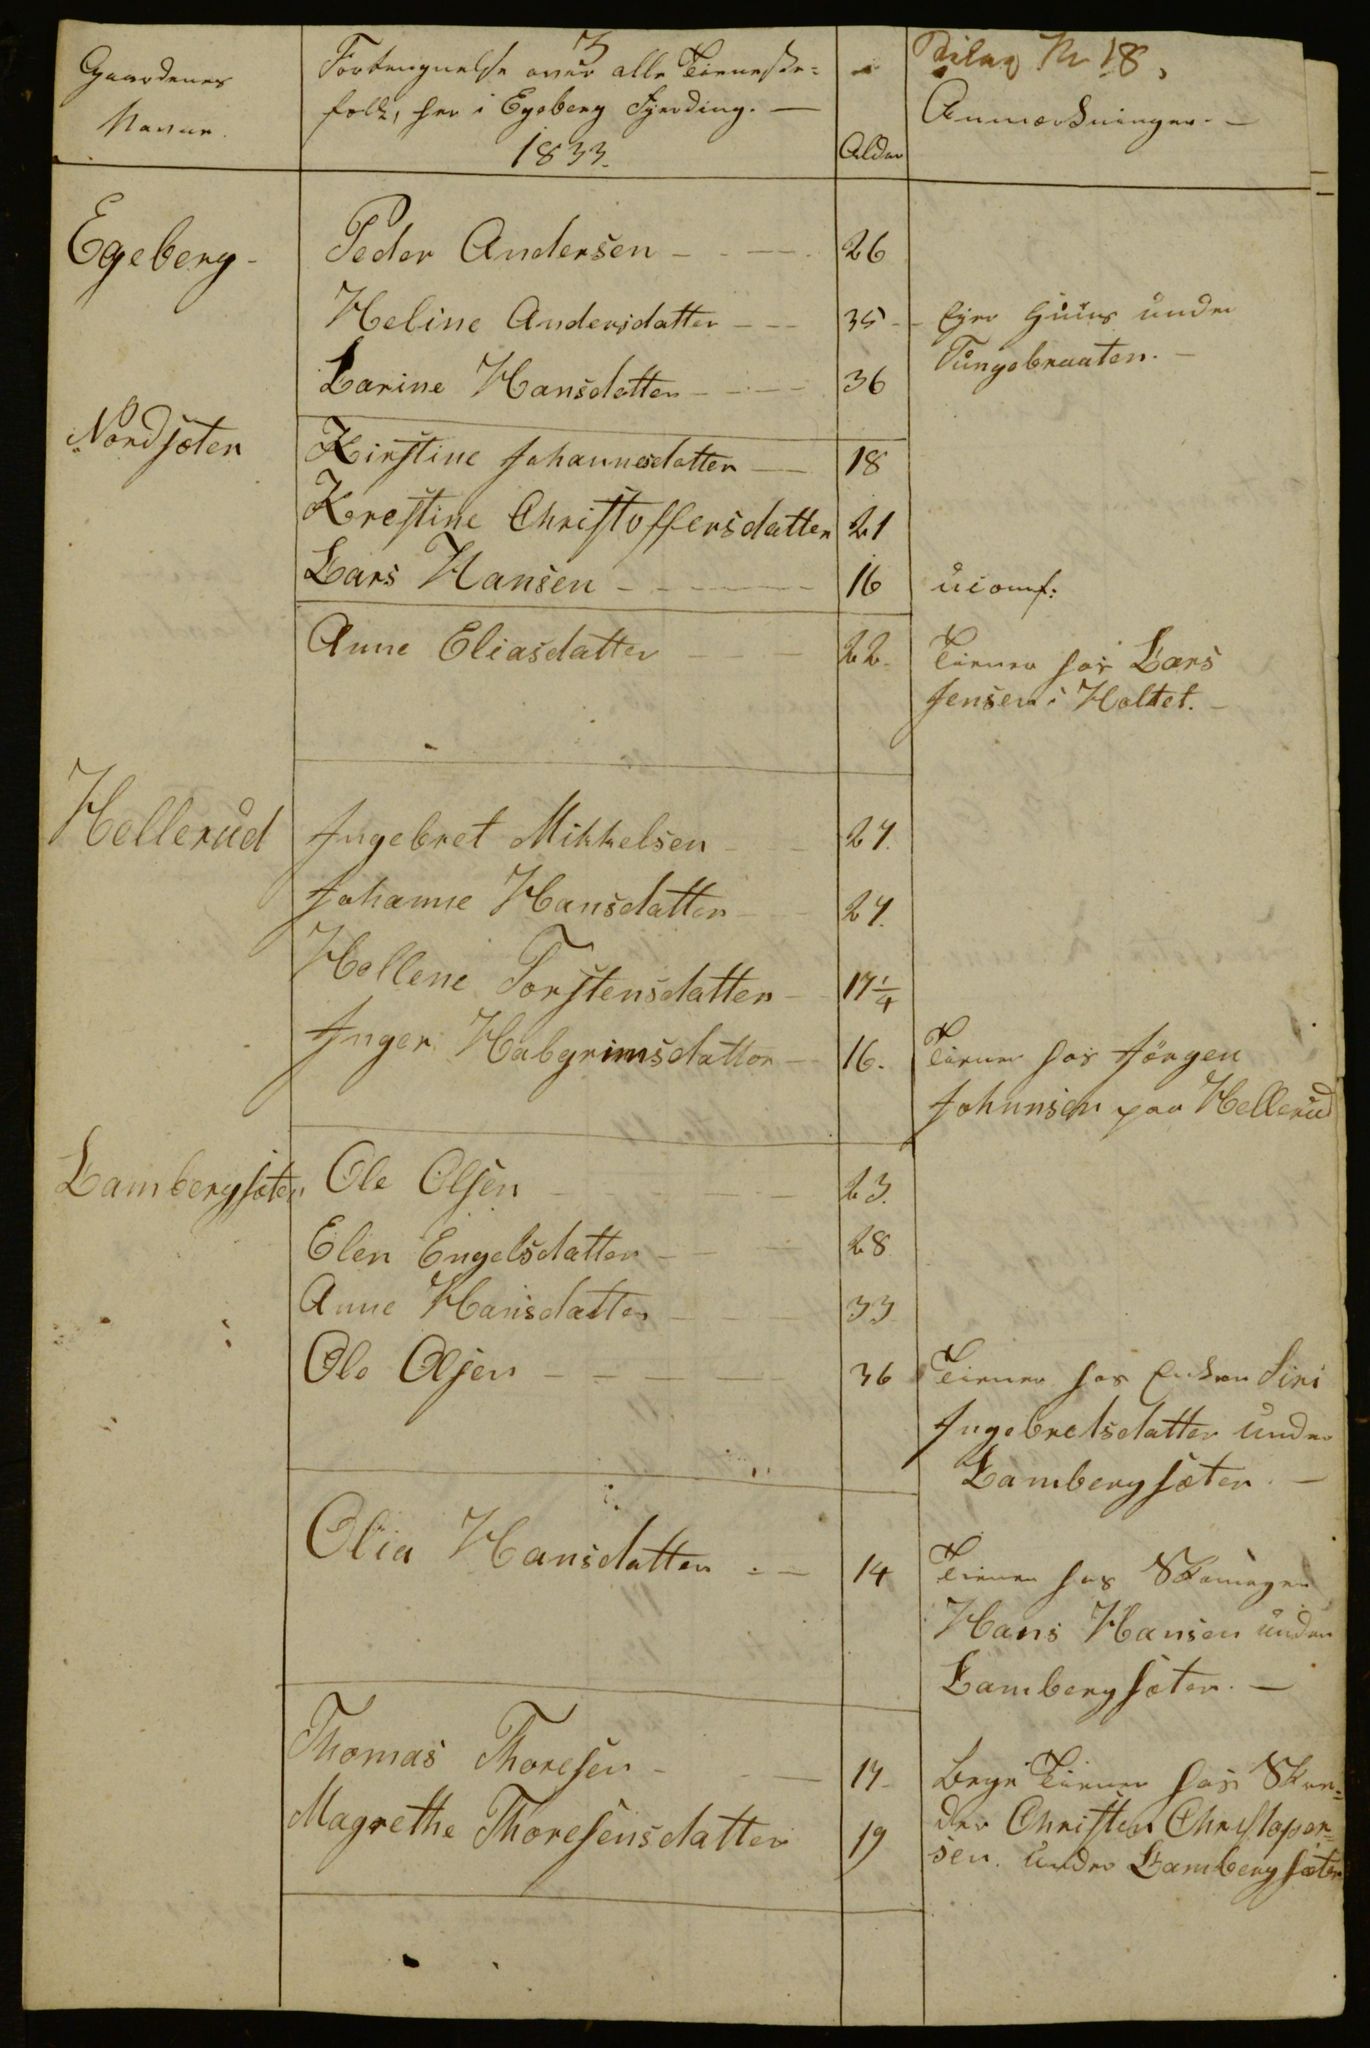 Bilag Nr 18,
Gaardenes
Navne.
Fortegnelse over alle Tieneste=
folk, her i Egeberg Fjerding. —
1833.
Alder
Anmerkninger. —
Egeberg -
Peder Andersen - - — . 26
Heline Andersdatter - — 35 - Eyer Huus under
Tungebraaten. —
Larine Hansdatter - - — 36
Nordsæter
Kirstine Johannesdatter — 18
Krestine Christoffersdatter 21
Lars Hansen - - — 16 uconf:
Anne Eliasdatter — — 22. Tiener hos Lars
Jensen i Holtet. -
Hellerud
Ingebret Mikkelsen - - 27.
Johanne Hansdatter - - 27.
Hellene Torstensdatter - - 17 1/4
Inger Halgrimsdatter — 16. Tiener hos Jörgen
Johnnsen paa Hellerud
Lambergsæter
Ole Olsen — — — 23.
Elen Engelsdatter - — - 28
Anne Hansdatter - — - 33
Ole Olsen - — — — 36 Tiener hos Enken Siri
Ingebretsdatter under
Lambergsæter. —
Olia Hansdatter - — 14 Tiener hos
Hans Hansen under
Lambergsæter. —
Thomas Thoresen - - — 17 - begge Tiener hos Skre=
Magrethe Thoresensdatter 19 der Christen Christoper=
sen. under Lambergsæter